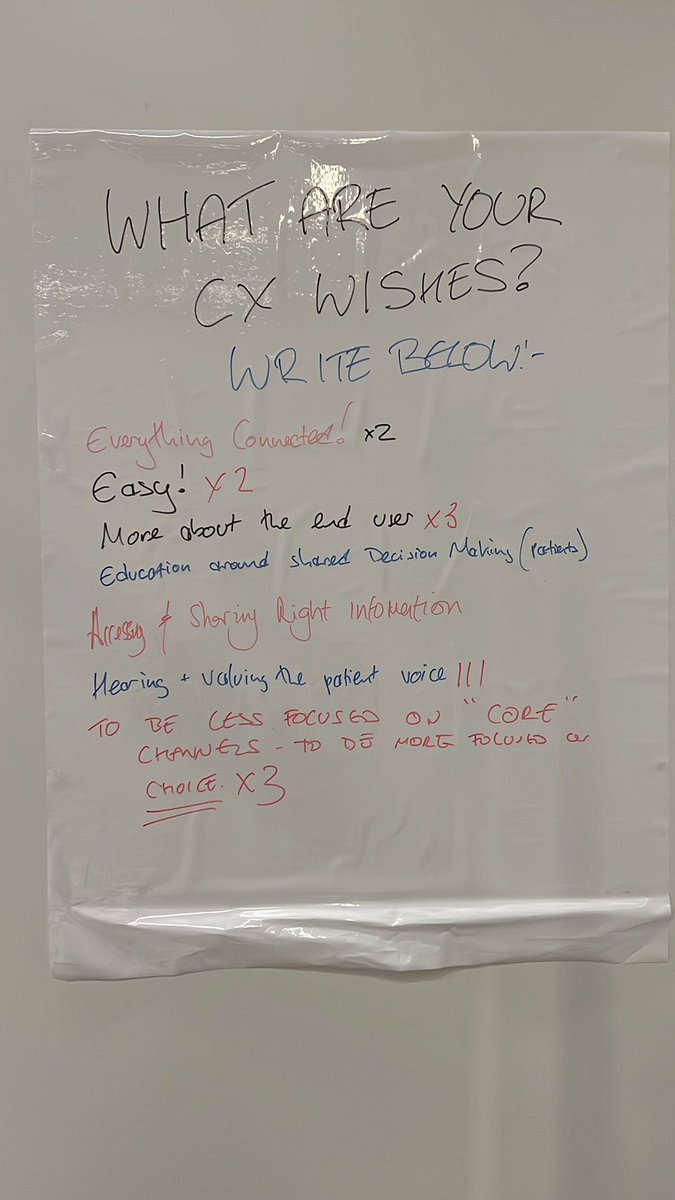 WHAT ARE YOUR
CX WISHES?
WRITE BELOW:-
Everything Connected! x2
Easy! x2
More about the end user x3
Education around shared Decision Making (patients)
Accessing & Sharing Right Infomation
Hearing + valuing the patient voice |||
TO BE LESS FOCUSED ON "CORE"
CHANNELS - TO BE MORE FOCUSED ON
CHOICE. X3